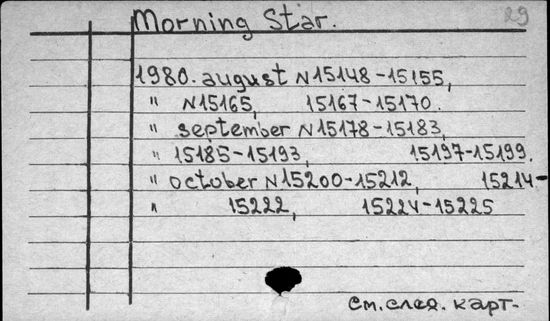 Morning Star. 29
1980. august N15148-15155,
" N15165, 15167-15170.
" september N15178-15183,
" 15185-15193, 15197-15199.
" october N15200-15212, 15214-
" 15222, 15224-15225
См. след. карт-